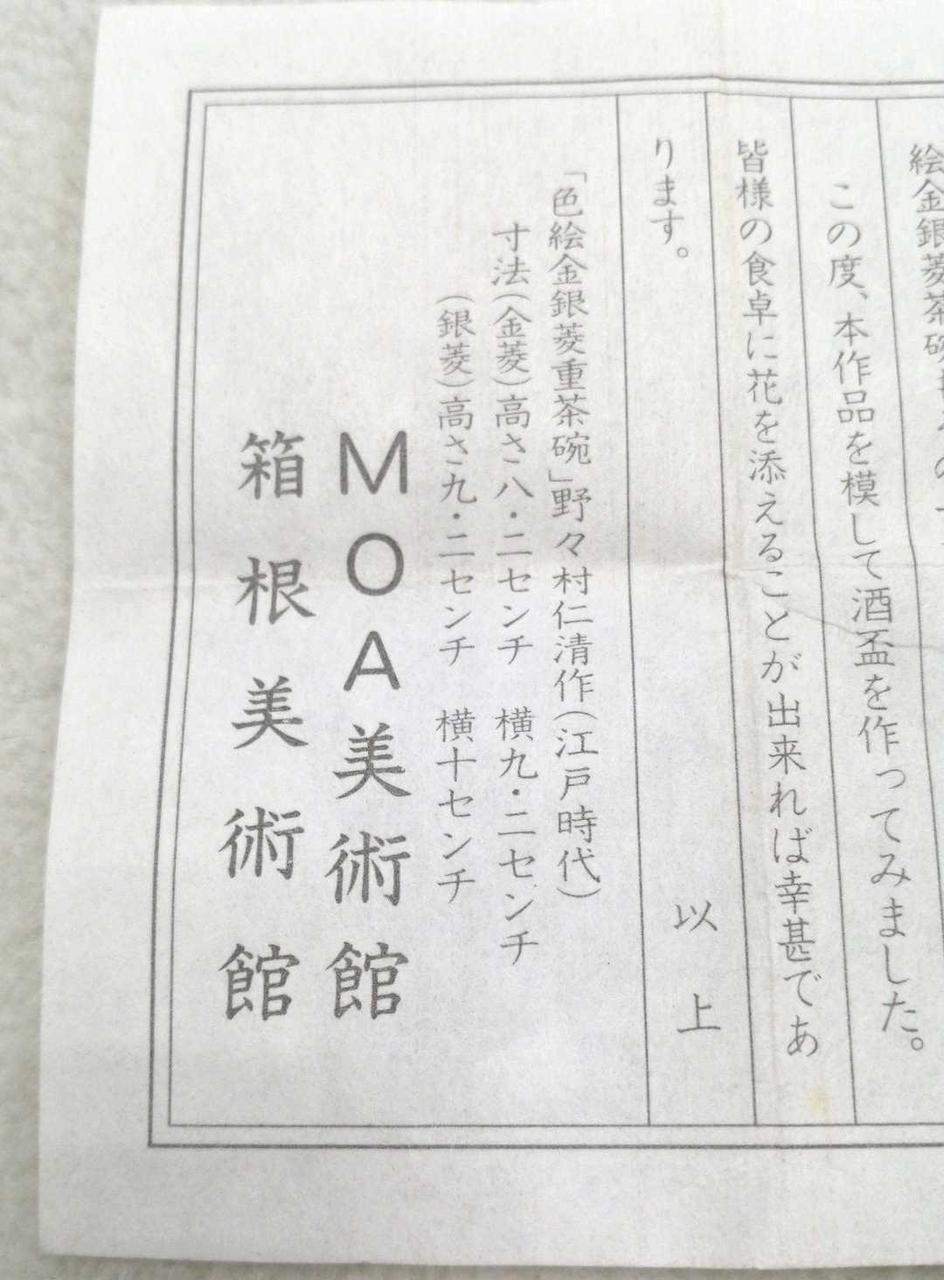 絵金銀菱茶碗
この度、本作品を模して酒盃を作ってみました。
皆様の食卓に花を添えることが出来れば幸甚であ
ります。
以上
「色絵金銀菱重茶碗」野々村仁清作(江戸時代)
寸法(金菱)高さ八・二センチ 横九・二センチ
(銀菱)高さ九・二センチ 横十センチ
MOA美術館
箱根美術館